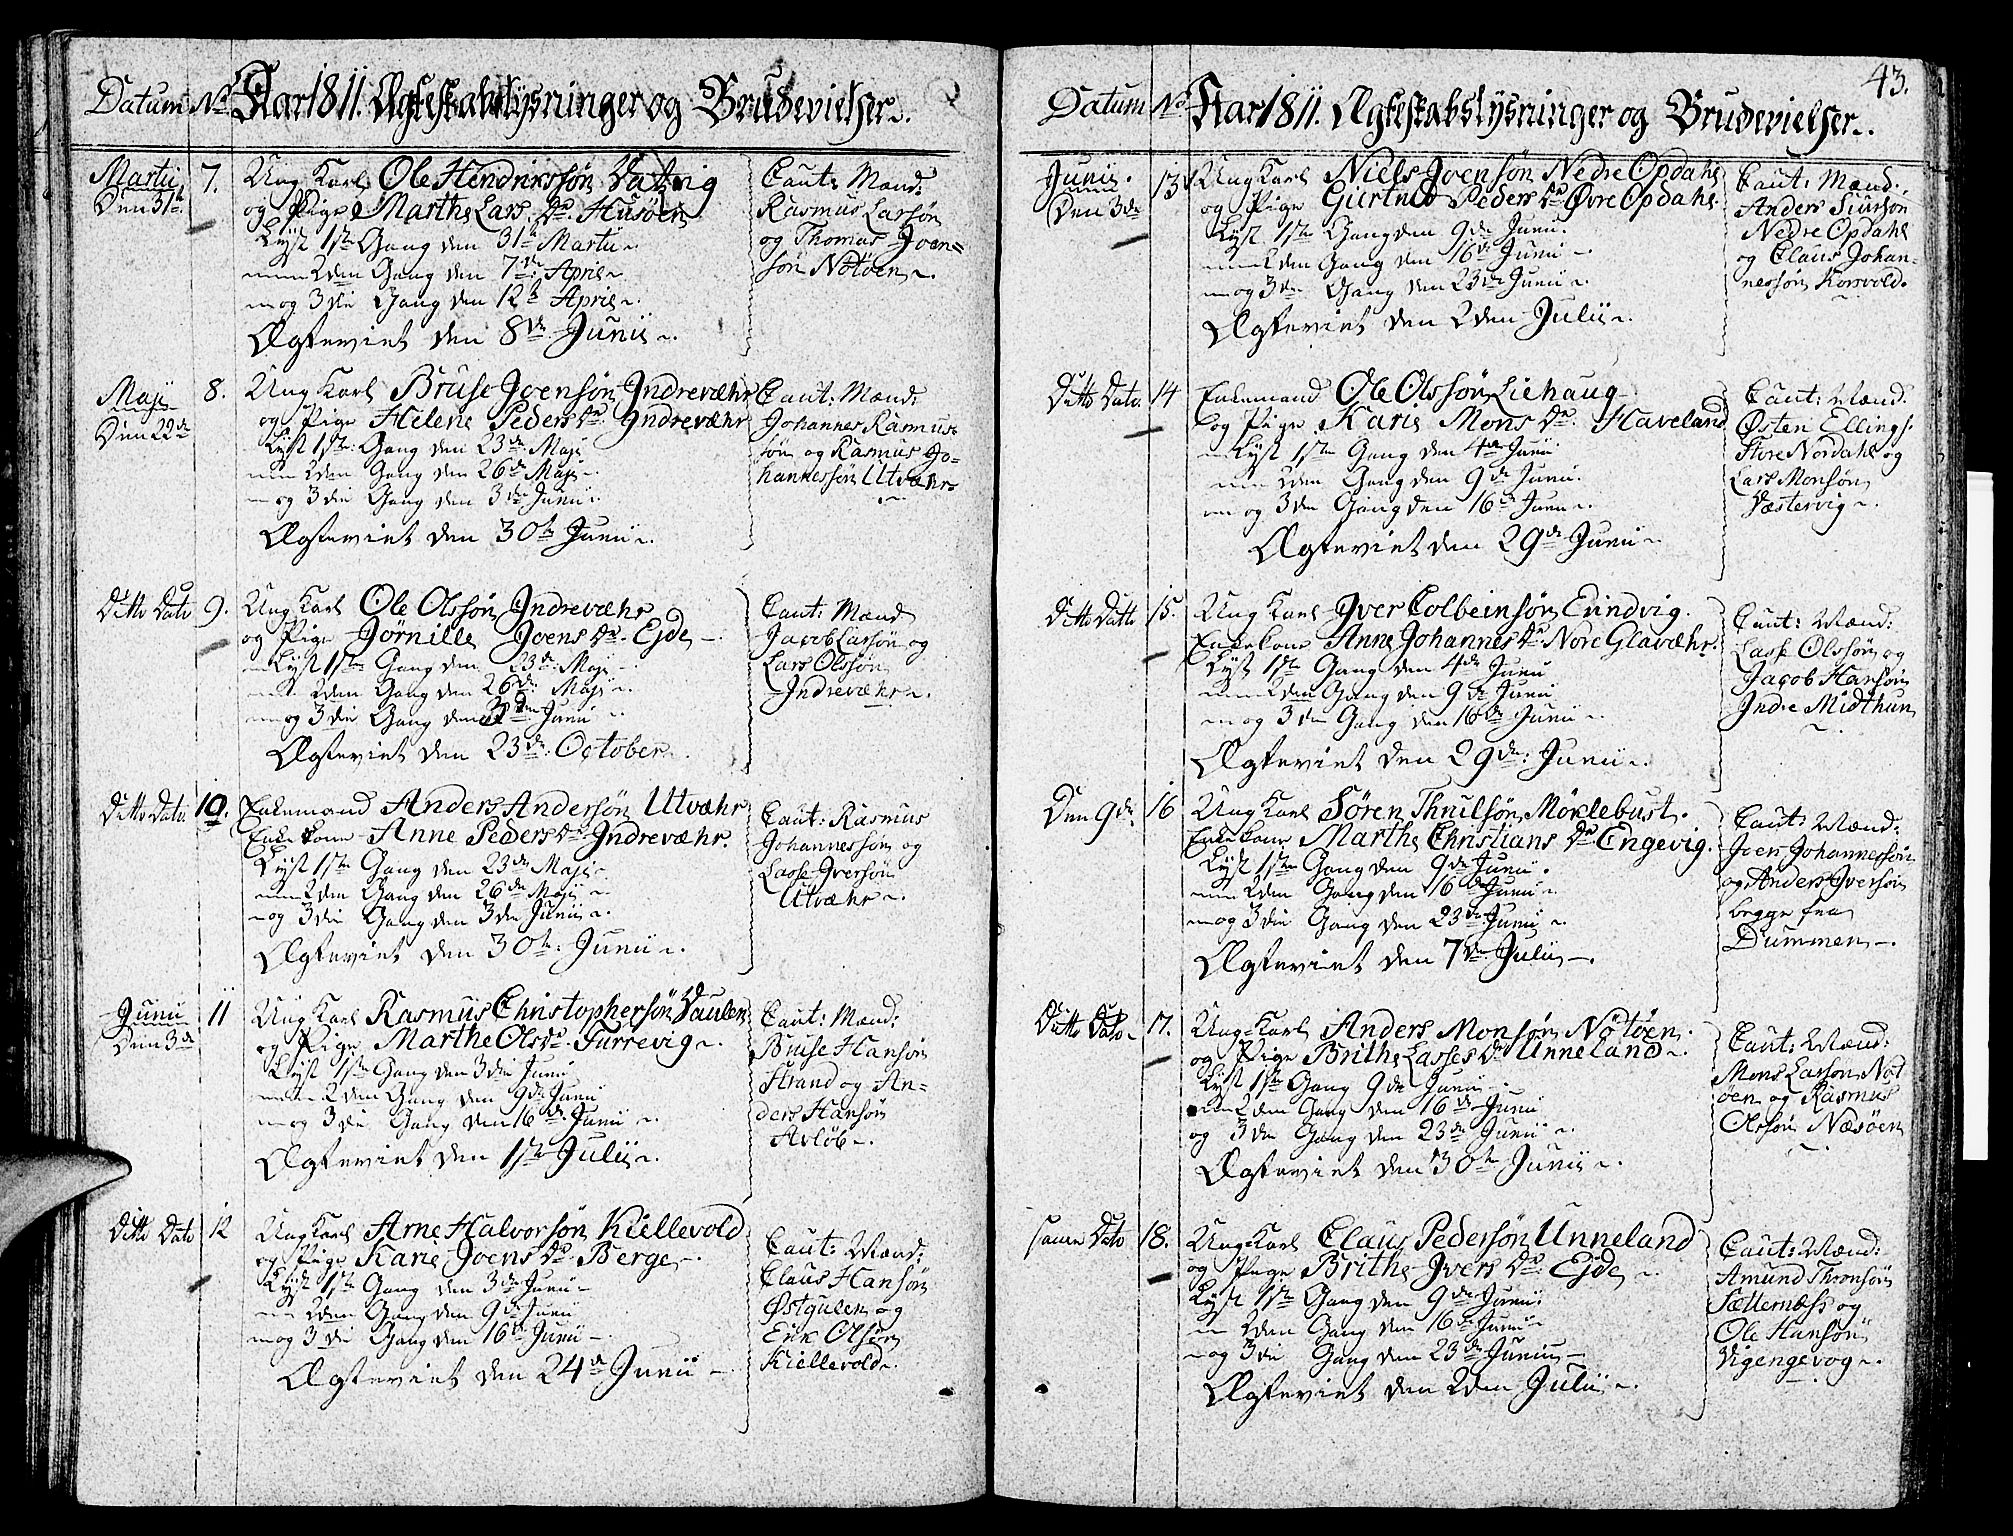 Datum No Aar 1811. Ægteskabslysninger og Brudevielser.
Martii 7. Ung Karl Ole Hendrikssøn
Den 31te og Pige Marthe Lars Dr. Husøen
Lyst 1ste Gang den 31te Martii
2den Gang den 7de April
og 3die Gang den 12te April
Ægteviet den 8de Junii
Caut: Mænd:
Rasmus Larsøn
og Thomas Joen=
søn Nøtøen
Maji 8. Ung Karl Bruse Joensøn Indrevæhr
Den 22de og Pige Helene Peders Dr. Indrevæhr
Lyst 1ste Gang den 23de Maji
2den Gang den 26de Maji
og 3die Gang den 3die Junii
Ægteviet den 30te Junii
Caut: Mænd:
Johannes Rasmus=
søn og Rasmus Jo=
hannessøn Utvæhr
Ditto Dato 9. Ung Karl Ole Olssøn Indrevæhr
og Pige Jörnille Joens Dr. Ejde
Lyst 1ste Gang den 23de Maji
2den Gang den 26de Maji
og 3die Gang den Junii
Ægteviet den 23de October
Caut: Mænd
Jacob Larsøn og
Lars Olssøn
Indrevæhr
Ditto Dato 10. Enkemand Anders Andersøn Utvæhr
Enkekone Anne Peders Dr. Indrevæhr.
Lyst 1ste Gang den 23de Maji
2den Gang den 26de Maji
og 3die Gang den 3die Junii
Ægteviet den 30te: Junii
Caut: Rasmus
Johannessøn og
Lasse Iversøn
Utvæhr
Junii 11 Ung Karl Rasmus Christophersøn
Den 3die og Pige Marthe Ols Dr. Furrevig
Lyst 1ste Gang den 3die Junii
2den Gang den 9de Junii
og 3die Gang den 16de Junii
Ægteviet den 1ste Julii
Caut: Mænd:
Bruse Hansøn
Strand og An=
ders Hansøn
Avløb
Ditto Dato 12 Ung Karl Arne Halvorsøn Kiellevold
og Pige Karie Joens Dr. Berge
Lyst 1ste Gang den 3die Junii
2den Gang den 9de Junii
og 3die Gang den 16de Junii
Ægteviet den 24de Junii
Caut: Mænd:
Claus Hansøn
Østgulen og
Erik Olsøn
Kiellevold
43.
Datum No Aar 1811. Ægteskabslysninger og Brudevielser.
Junii. 13 Ung Karl Niels Joensøn Nedre Opdahl
Den 3die og Pige Peders Dr. Øvre Opdahl
Lyst 1ste Gang den 9de Junii
2den Gang den 16de Junii
og 3die Gang den 23de Junii
Ægteviet den 2den Julii
Caut: Mænd.
Anders Siursøn
Nedre Opdahl
og Claus Johan=
nessøn Korsvold.
Ditto Dato. 14 Enkemand Ole Olssøn Liehaug
og Pige Karie Mons Dr. Haveland
Lyst 1ste Gang den 4de Junii
2den Gang den 9de Junii
og 3die Gang den 16de Junii
Ægteviet den 29de Junii
Caut: Mænd:
Østen Ellings:
Store Nordahl og
Lars Monsøn
Væstervig
Ditto Datto 15. Ung Karl Iver Colbeinsøn Evindvig.
Enkekone Anne Johannes Dr. Nore Glavæhr.
Lyst 1ste Gang den 4de Junii
2den Gang den 9de Junii
og 3die Gang den 16de Junii
Ægteviet den 29de: Junii
Caut: Mænd:
Lasse Olssøn og
Jacob Hansøn
Indre Midthun
Den 9de 16 Ung Karl Søren Thnilsøn Möklebust.
Enkekone Marthe Christians Dr. Engevig.
Lyst 1ste Gang den 9de Junii
2den Gang den 16de Junii
og 3die Gang den 23de Junii
Ægteviet den 7de Julii
Caut: Mænd:
Joen Johannessøn
og Anders Iversøn
begge fra
Dummen
Ditto Dato 17. Ung Karl Anders Monsøn Nøtøen
og Pige Brithe Lasses Dr. Unneland
Lyst 1ste Gang 9de Junii
2den Gang den 16de Junii
og 3die Gang den 23de Junii
Ægteviet den 30te Junii
Caut: Mænd:
Mons Larsøn Nöt
øen og Rasmus
Olssøn Næsøen
samme Dato 18. Ung Karl Claus Pedersøn Unneland
og Pige Brithe Ivers Dr. Ejde
Lyst 1ste Gang den 9de Junii
2den Gang den 16de Junii
og 3die Gang den 23de Junii
Ægteviet den 2den Julii
Caut: Mænd:
Amund Thronsøn
Sætternæss og
Ole Hansøn
Vigengevog